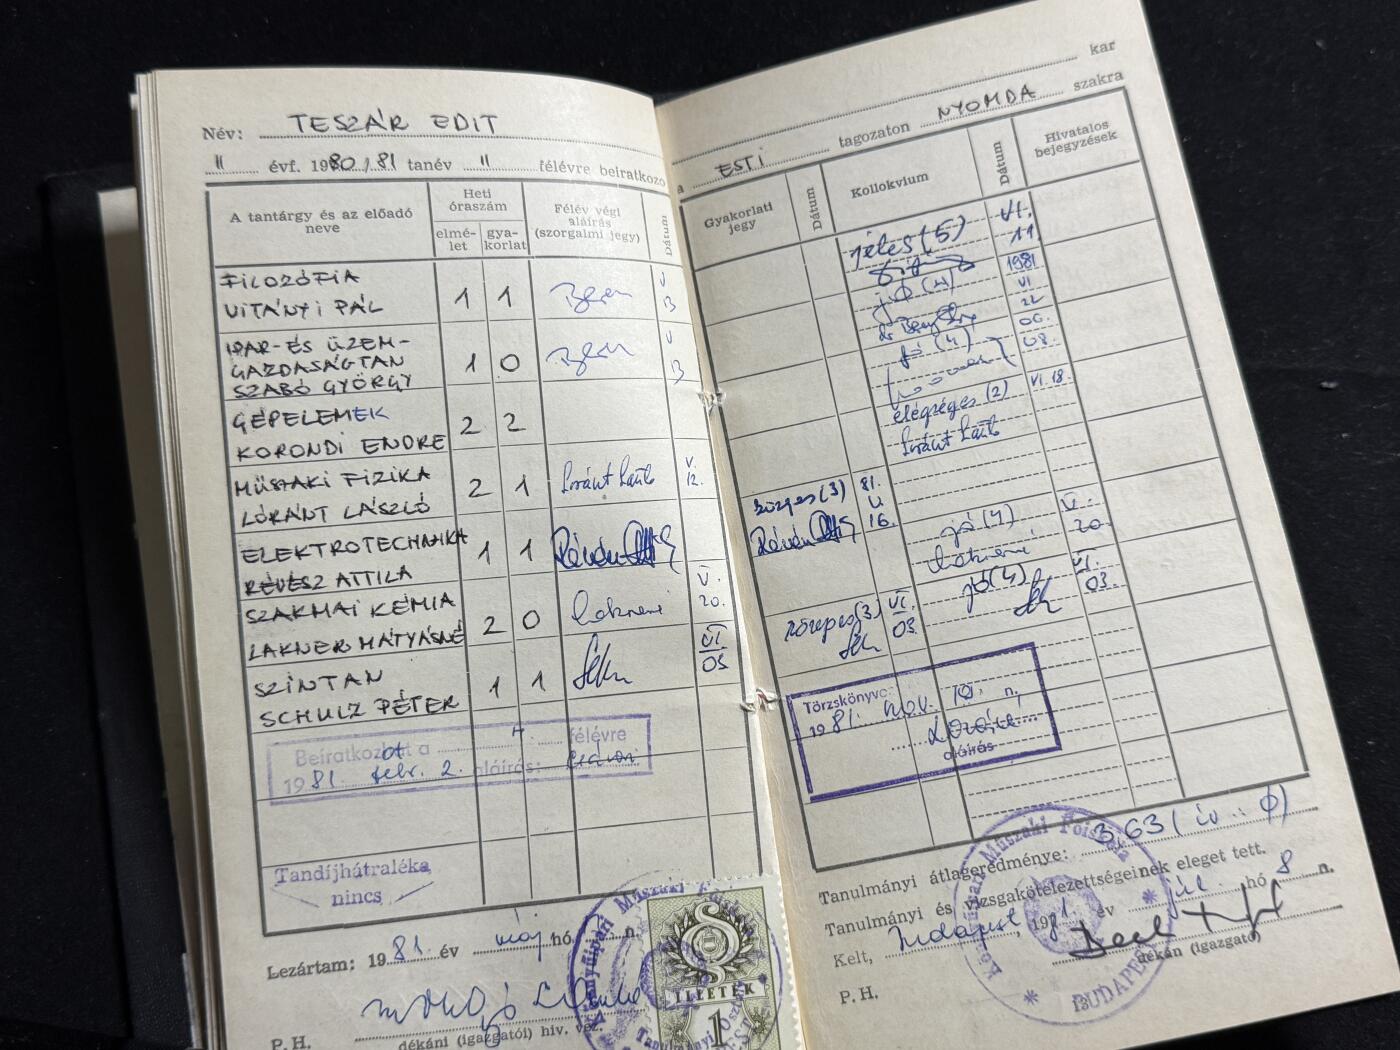 Név: TESZÁR EDIT
II évf. 1980/81 tanév II félévre beiratkozo
A tantárgy és az előadó neve
Heti óraszám
elmé-
let
gya-
korlat
Félév végi
aláírás
(szorgalmi jegy)
Dátum
FILOZÓFIA
VITÁNYI PÁL
1 1
V
13
IPAR- ÉS ÜZEM-
GAZDASÁGTAN
SZABÓ GYÖRGY
1 0
V
13
GÉPELEMEK
KORONDI ENDRE
2 2
MŰSZAKI FIZIKA
LÓRÁNT LÁSZLÓ
2 1
Lóránt László
V.
12.
ELEKTROTECHNIKA
RÉVÉSZ ATTILA
1 1
SZAKMAI KÉMIA
LAKNER MÁTYÁSNÉ
2 0
Laknerné
V.
20.
SZÍNTAN
SCHULZ PÉTER
1 1
VI
03
Beiratkozott a félévre
1981. febr. 2. aláírás:
Tandíjhátraléka,
nincs
Lezártam: 1981 év máj hó n.
P. H.
dékáni (igazgatói) hiv. vez.
Könnyűipari Műszaki Főiskola
ILLETÉK
1
kar
a ESTI tagozaton NYOMDA szakra
Gyakorlati
jegy
Dátum
Kollokvium
Dátum
Hivatalos
bejegyzések
jeles (5)
VI.
11.
jó (4)
1981
VI
22
jó (4)
06.
08.
elégséges (2)
VI. 18.
Lóránt László
közepes (3)
81.
V.
16.
jó (4)
V.
20.
Laknerné
közepes (3)
VI.
03.
jó (4)
VI.
03.
Törzskönyve
1981. nov. 10. n.
aláírás
Tanulmányi átlageredménye: 3,63
Tanulmányi és vizsgakötelezettségeinek eleget tett.
Kelt, Budapest, 1981. év júl hó 8 n.
dékán (igazgató)
P. H.
Könnyűipari Műszaki Főiskola
* BUDAPEST *
13